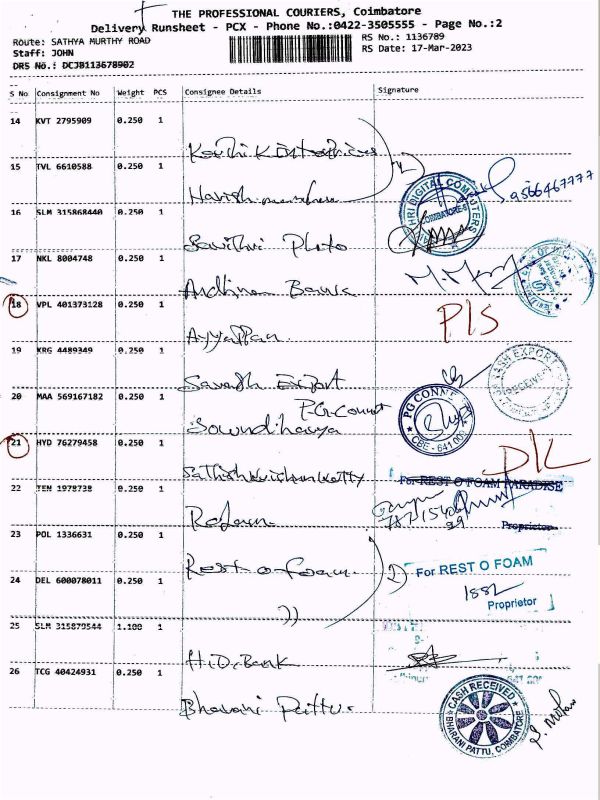 THE PROFESSIONAL COURIERS, Coimbatore
Delivery Runsheet - PCX - Phone No.:0422-3505555 - Page No.:2
Route: SATHYA MURTHY ROAD
RS No.: 1136789
Staff: JOHN
RS Date: 17-Mar-2023
DRS No.: DCJB113678902
S No Consignment No Weight PCS Consignee Details Signature
14 KVT 2795909 0.250 1
15 TVL 6610588 0.250 1
9566467777
16 SLM 315868440 0.250 1
DIGITAL COMPUTERS
COIMBATORE
Savithri Photo
17 NKL 8004748 0.250 1
Andhra Bank
18 VPL 401373128 0.250 1
P/S
Ayyappan
19 KRG 4489349 0.250 1
EXPORT
RECEIVED
Export
20 MAA 569167182 0.250 1
PG CONNE
CBE - 641 00
21 HYD 76279458 0.250 1
D/L
22 TEN 1978738 0.250 1
For REST O FOAM PARADISE
Proprietor
23 POL 1336631 0.250 1
Rest o foam
For REST O FOAM
24 DEL 600078011 0.250 1
1882
Proprietor
25 SLM 315879544 1.100 1
Bank
26 TCG 40424931 0.250 1
Bhavani Pattu
CASH RECEIVED
BHARANI PATTU, COIMBATORE